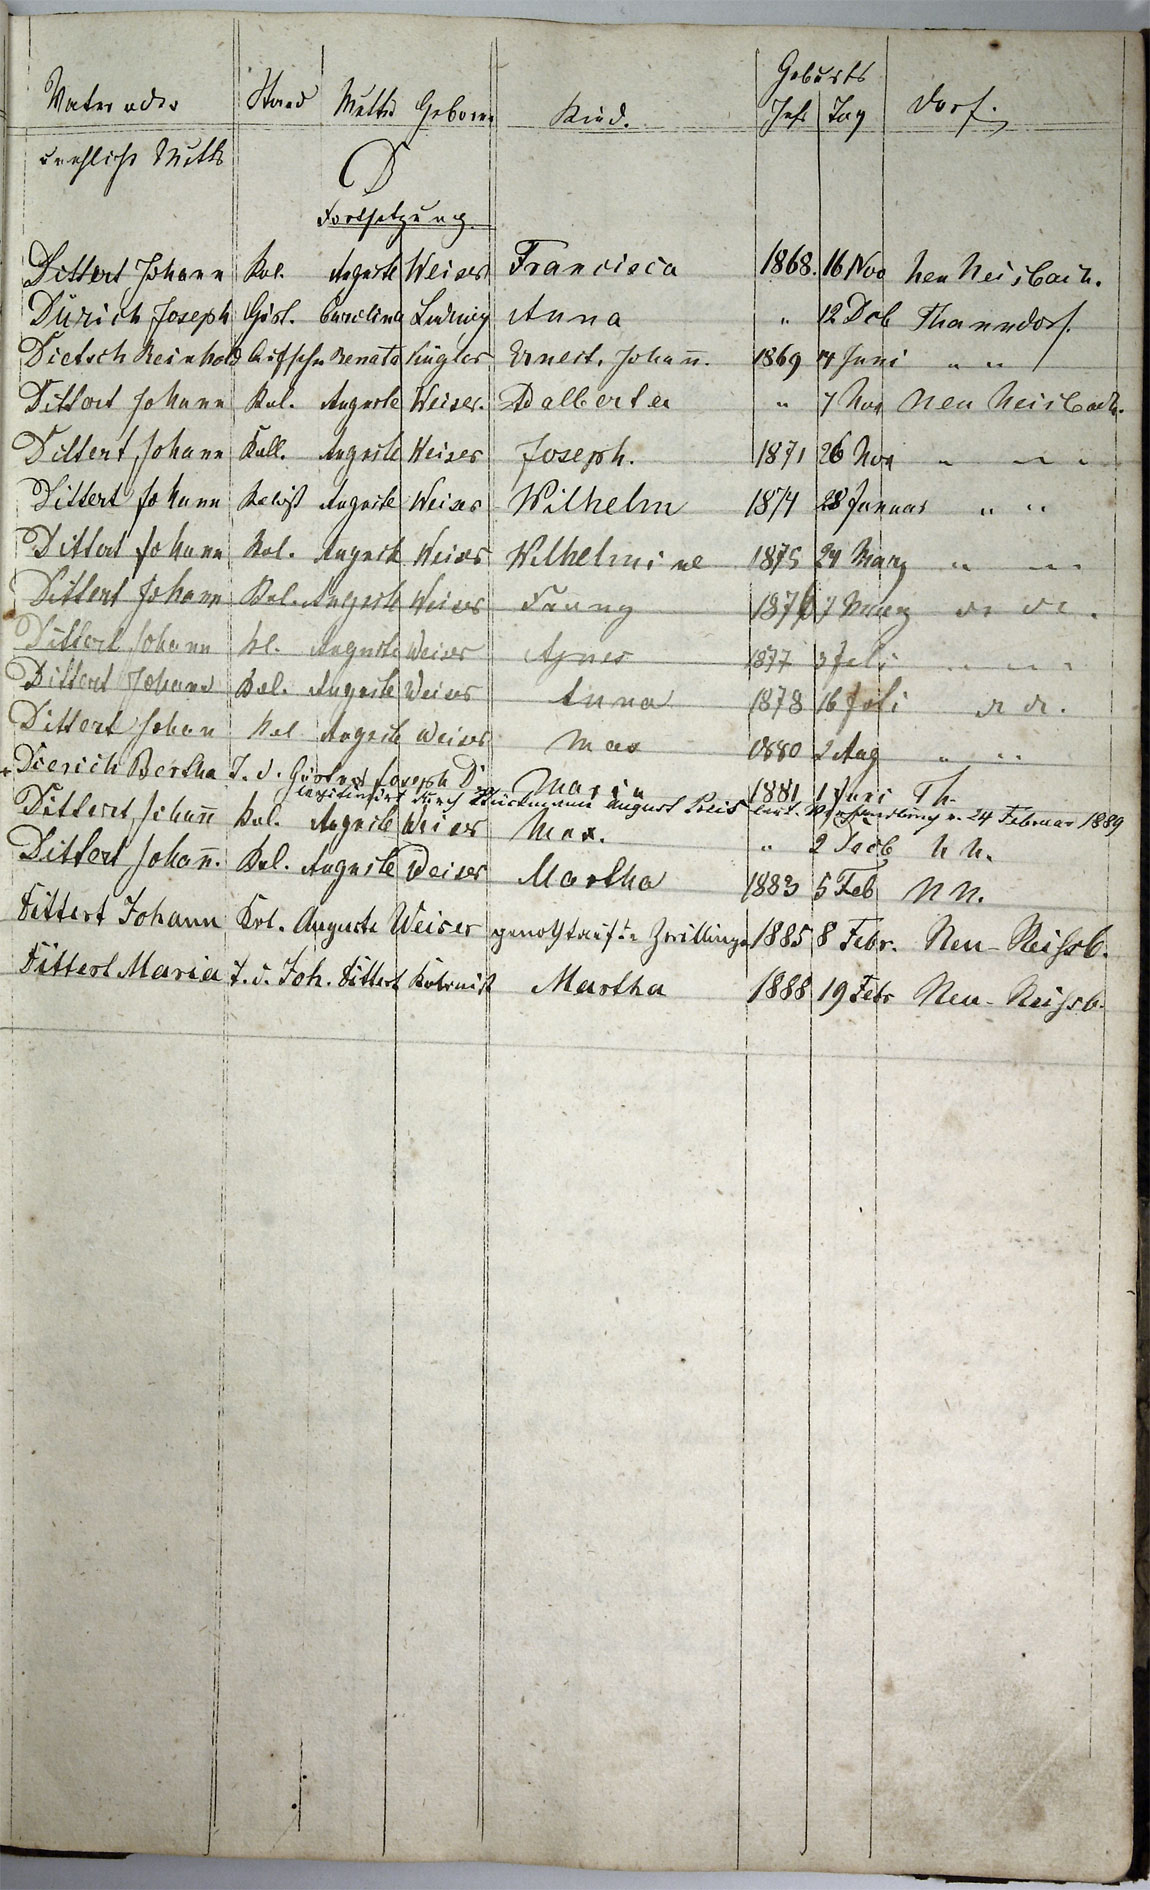 Geburts
Vater oder Stand Mutter Geborne Kind. Jahr Tag Dorf.
unehliche Mutter
D
Fortsetzung
Dittert Johann Kol. Auguste Weiser Francisca 1868. 16 Nov Neu Neisbach.
Dürich Joseph Gärt. Carolina Ludwig Anna " 12 Dcb Thanndorf.
Dietsch Reinhold Renata Kügler Ernest. Johañ. 1869 4 Juni " "
Dittert Johann Kol. Auguste Weiser. Adalberta " 7 Nov Neu Neisbach.
Dittert Johann Koll. Auguste Weiser Joseph. 1871 26 Nov " " "
Dittert Johann Kolist Auguste Weiser Wilhelm 1874 28 Januar " "
Dittert Johann Kol. Auguste Weiser Wilhelmine 1875 24 März " "
Dittert Johann Kol. Auguste Weiser Fanny 1876 7 März
Dittert Johann Kl. Auguste Weiser Agnes 1877 3 Juli " " "
Dittert Johann Kol. Auguste Weiser Anna 1878 16 Juli
Dittert Johan Kol Auguste Weiser Max 1880 2 Aug " "
Dierich Bertha T. d. Joseph D. Maria 1881 1 Juni Th.
legitimirt durch August Preis laut Verhandlung v. 24 Februar 1889
Dittert Johañ Kol. Auguste Weiser Max. " 2 N N.
Dittert Johañ. Kol. Auguste Weiser Martha 1883 5 Feb N N.
Dittert Johann Kol. Auguste Weiser genothtaufte Zwillinge 1885 8 Febr. Neu-Neissb.
Dittert Maria T. d. Joh. Dittert Kolonist Martha 1888 19 Febr Neu-Neissb.